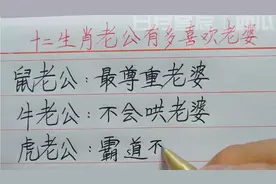 十二生肖老公有多喜欢老婆
鼠老公:最尊重老婆
牛老公:不会哄老婆
虎老公:霸道不